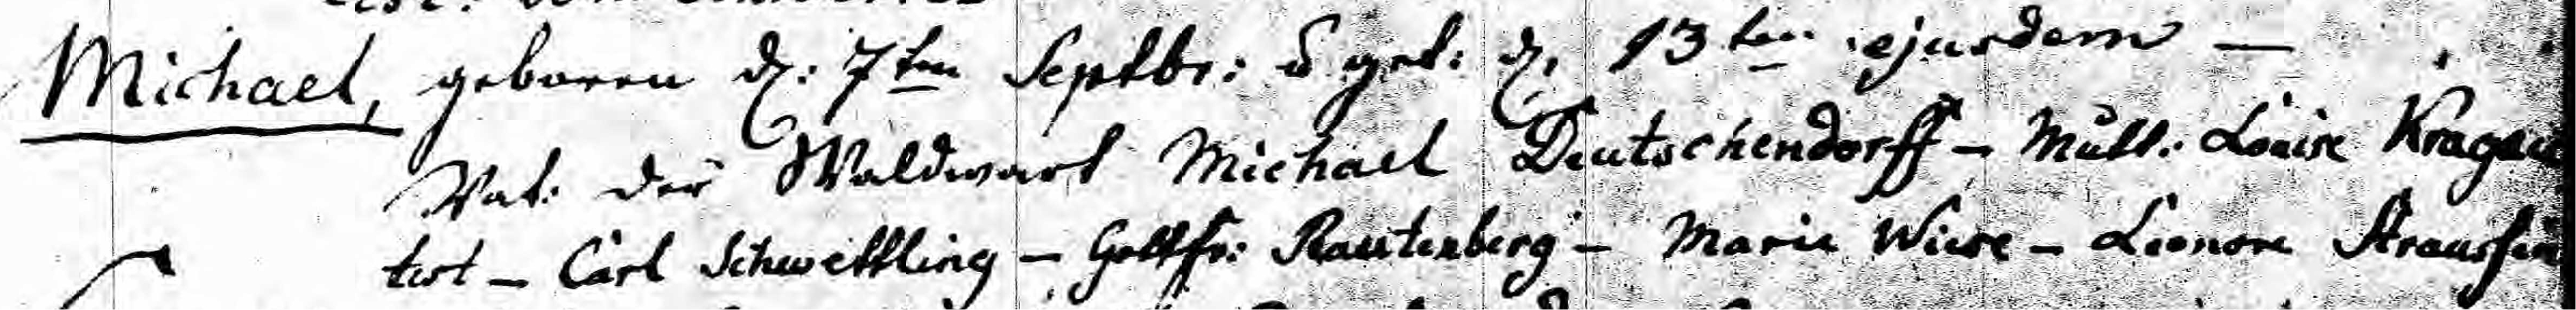 Michael, geboren d: 7ten Septbr: & get: d. 13ten ejusdem —
Vat: der Waldwart Michael Deutschendorff – Mutt: Louise
test – Carl Schwettling – Gottfr: Rautenberg – Marie Wiese – Leonore